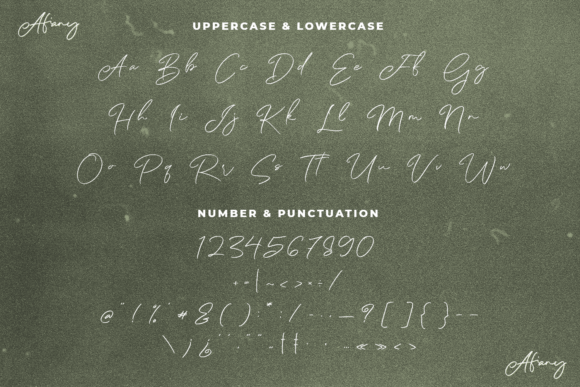 Afany
UPPERCASE & LOWERCASE
Aa Bb Cc Dd Ee Ff Gg
Hh Ii Jj Kk Ll Mm Nn
Oo Pq Rr Ss Tt Uu Vv Ww
NUMBER & PUNCTUATION
1234567890
+=|~<>×÷/
@ " ! % * # & ( ) ° * : / - · · — ? [ ] { } - -
\ j
« » < >
Afany